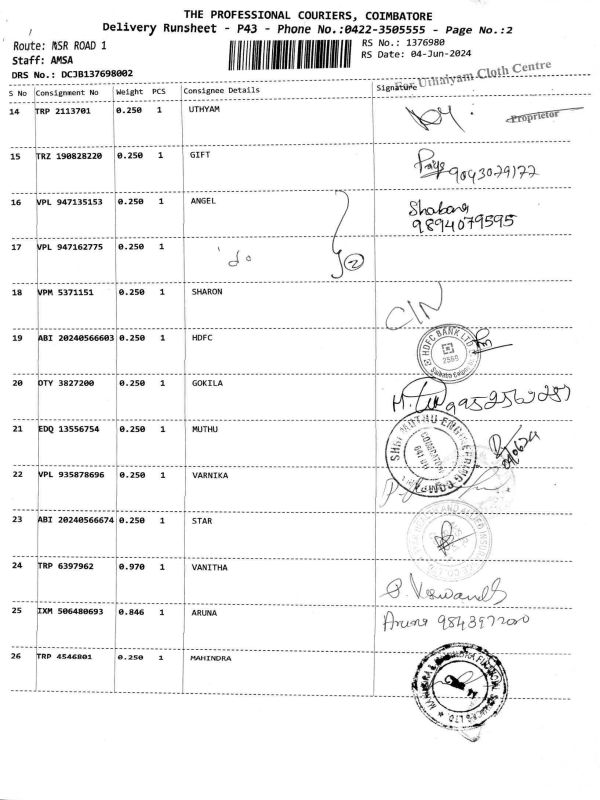 THE PROFESSIONAL COURIERS, COIMBATORE
Delivery Runsheet - P43 - Phone No.:0422-3505555 - Page No.:2
Route: MSR ROAD 1
RS No.: 1376980
Staff: AMSA
RS Date: 04-Jun-2024
DRS No.: DCJB137698002
For Uthaiyam Cloth Centre
S No Consignment No Weight PCS Consignee Details Signature
14 TRP 2113701 0.250 1 UTHYAM
Proprietor
15 TRZ 190828220 0.250 1 GIFT
Priya 9043029177
16 VPL 947135153 0.250 1 ANGEL
Shabana
9894079595
17 VPL 947162775 0.250 1 do 2
18 VPM 5371151 0.250 1 SHARON
19 ABI 20240566603 0.250 1 HDFC
HDFC BANK LTD
2569
20 OTY 3827200 0.250 1 GOKILA
21 EDQ 13556754 0.250 1 MUTHU
SHRI MUTHU ENGINEERING COMPANY
22 VPL 935878696 0.250 1 VARNIKA
23 ABI 20240566674 0.250 1 STAR
24 TRP 6397962 0.970 1 VANITHA
25 IXM 506480693 0.846 1 ARUNA
Aruna
26 TRP 4546801 0.250 1 MAHINDRA